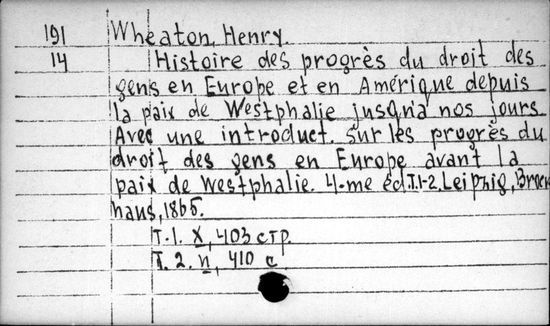 191 Wheaton, Henry.
14 Histoire des progrès du droit des
gens en Europe et en Amérique depuis
la paix de Westphalie jusqu'à nos jours
Avec une introduct. sur les progrès du
droit des gens en Europe avant la
paix de Westphalie. 4-me éd.T.1-2.Leipzig,Brock
haus,1865.
T.1. X, 403 стр.
T. 2. II, 410 с